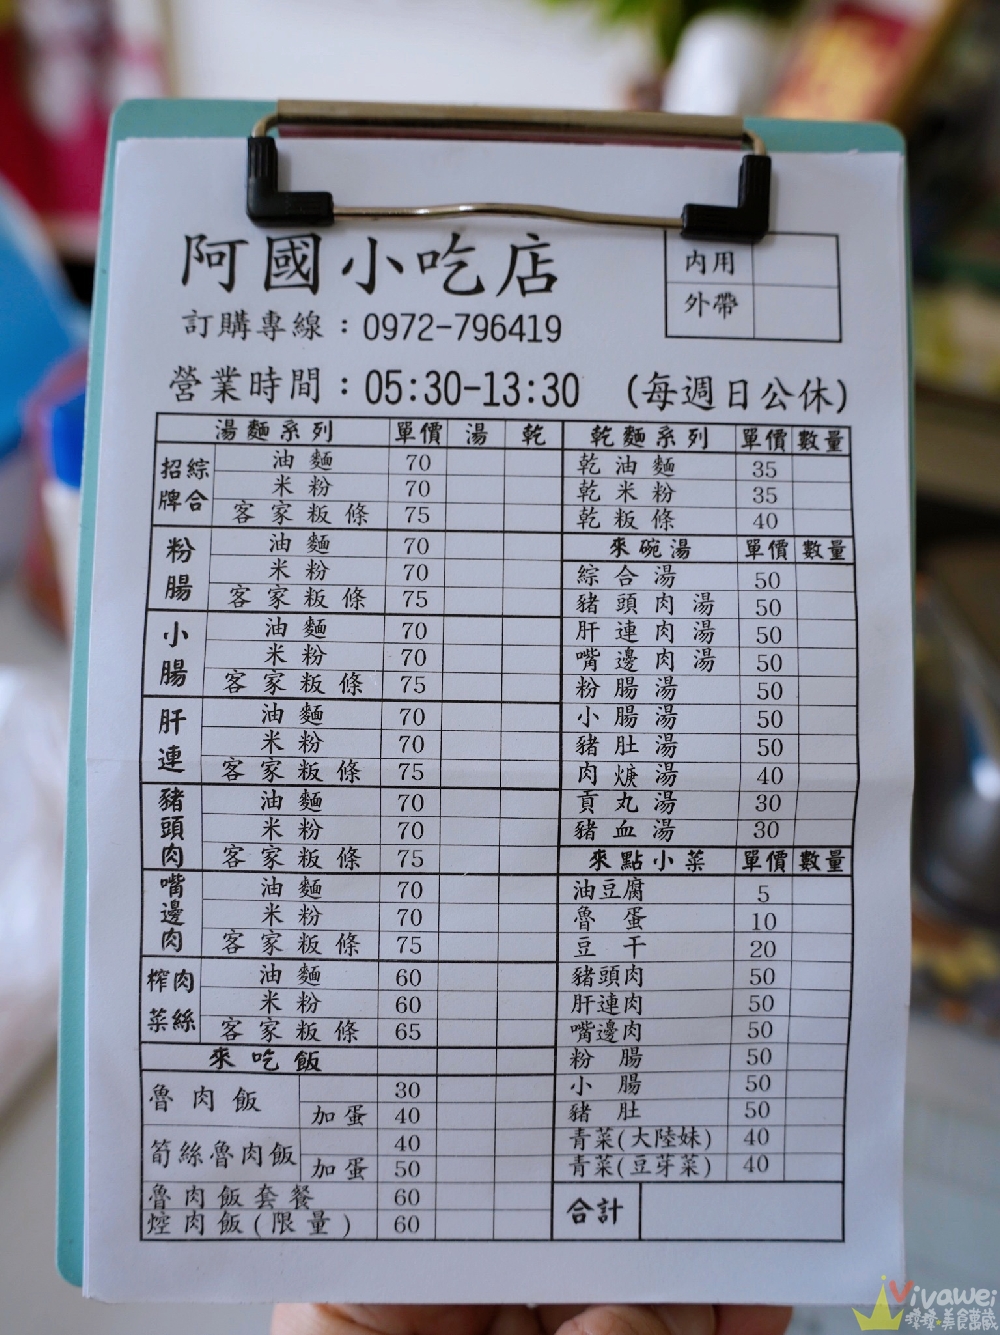 阿國小吃店
內用
外帶
訂購專線：0972-796419
營業時間：05:30-13:30 (每週日公休)
湯麵系列 單價 湯 乾
招牌綜合 油麵 70
米粉 70
客家粄條 75
粉腸 油麵 70
米粉 70
客家粄條 75
小腸 油麵 70
米粉 70
客家粄條 75
肝連 油麵 70
米粉 70
客家粄條 75
豬頭肉 油麵 70
米粉 70
客家粄條 75
嘴邊肉 油麵 70
米粉 70
客家粄條 75
榨菜肉絲 油麵 60
米粉 60
客家粄條 65
來吃飯
魯肉飯 30
加蛋 40
筍絲魯肉飯 40
加蛋 50
魯肉飯套餐 60
焢肉飯(限量) 60
乾麵系列 單價 數量
乾油麵 35
乾米粉 35
乾粄條 40
來碗湯 單價 數量
綜合湯 50
豬頭肉湯 50
肝連肉湯 50
嘴邊肉湯 50
粉腸湯 50
小腸湯 50
豬肚湯 50
肉焿湯 40
貢丸湯 30
豬血湯 30
來點小菜 單價 數量
油豆腐 5
魯蛋 10
豆干 20
豬頭肉 50
肝連肉 50
嘴邊肉 50
粉腸 50
小腸 50
豬肚 50
青菜(大陸妹) 40
青菜(豆芽菜) 40
合計
Vivawei